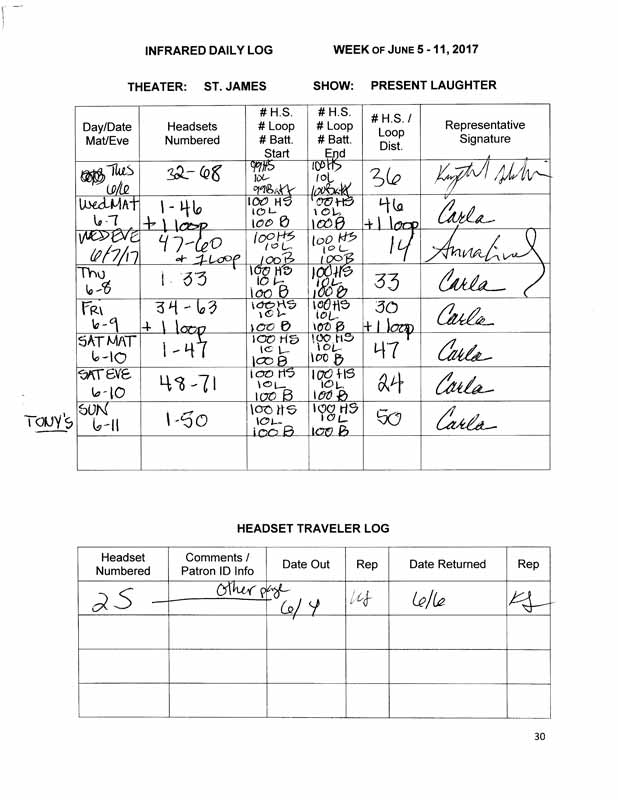 INFRARED DAILY LOG WEEK OF JUNE 5 - 11, 2017
THEATER: ST. JAMES SHOW: PRESENT LAUGHTER
Day/Date Mat/Eve Headsets Numbered # H.S. # Loop # Batt. Start # H.S. # Loop # Batt. End # H.S. / Loop Dist. Representative Signature
Tues 6/6 32-68 99HS 10L 99Batt 100HS 10L 100Batt 36
Wed MAT 6-7 1-46 +1 loop 100 HS 10L 100 B 100 HS 10L 100B 46 +1 loop Carla
WED EVE 6/7/17 47-60 + 1 Loop 100HS 10L 100B 100 HS 10L 100B 14
Thu 6-8 1-33 100 HS 10L 100 B 100 HS 10L 100 B 33 Carla
FRI 6-9 34-63 + 1 loop 100HS 10L 100 B 100HS 10L 100 B 30 +1 loop Carla
SAT MAT 6-10 1-47 100 HS 10L 100 B 100 HS 10L 100 B 47 Carla
SAT EVE 6-10 48-71 100 HS 10L 100 B 100 HS 10L 100 B 24 Carla
TONY'S SUN 6-11 1-50 100 HS 10L 100 B 100 HS 10L 100 B 50 Carla
HEADSET TRAVELER LOG
Headset Numbered Comments / Patron ID Info Date Out Rep Date Returned Rep
25 Other page 6/4 KS 6/6 KS
30